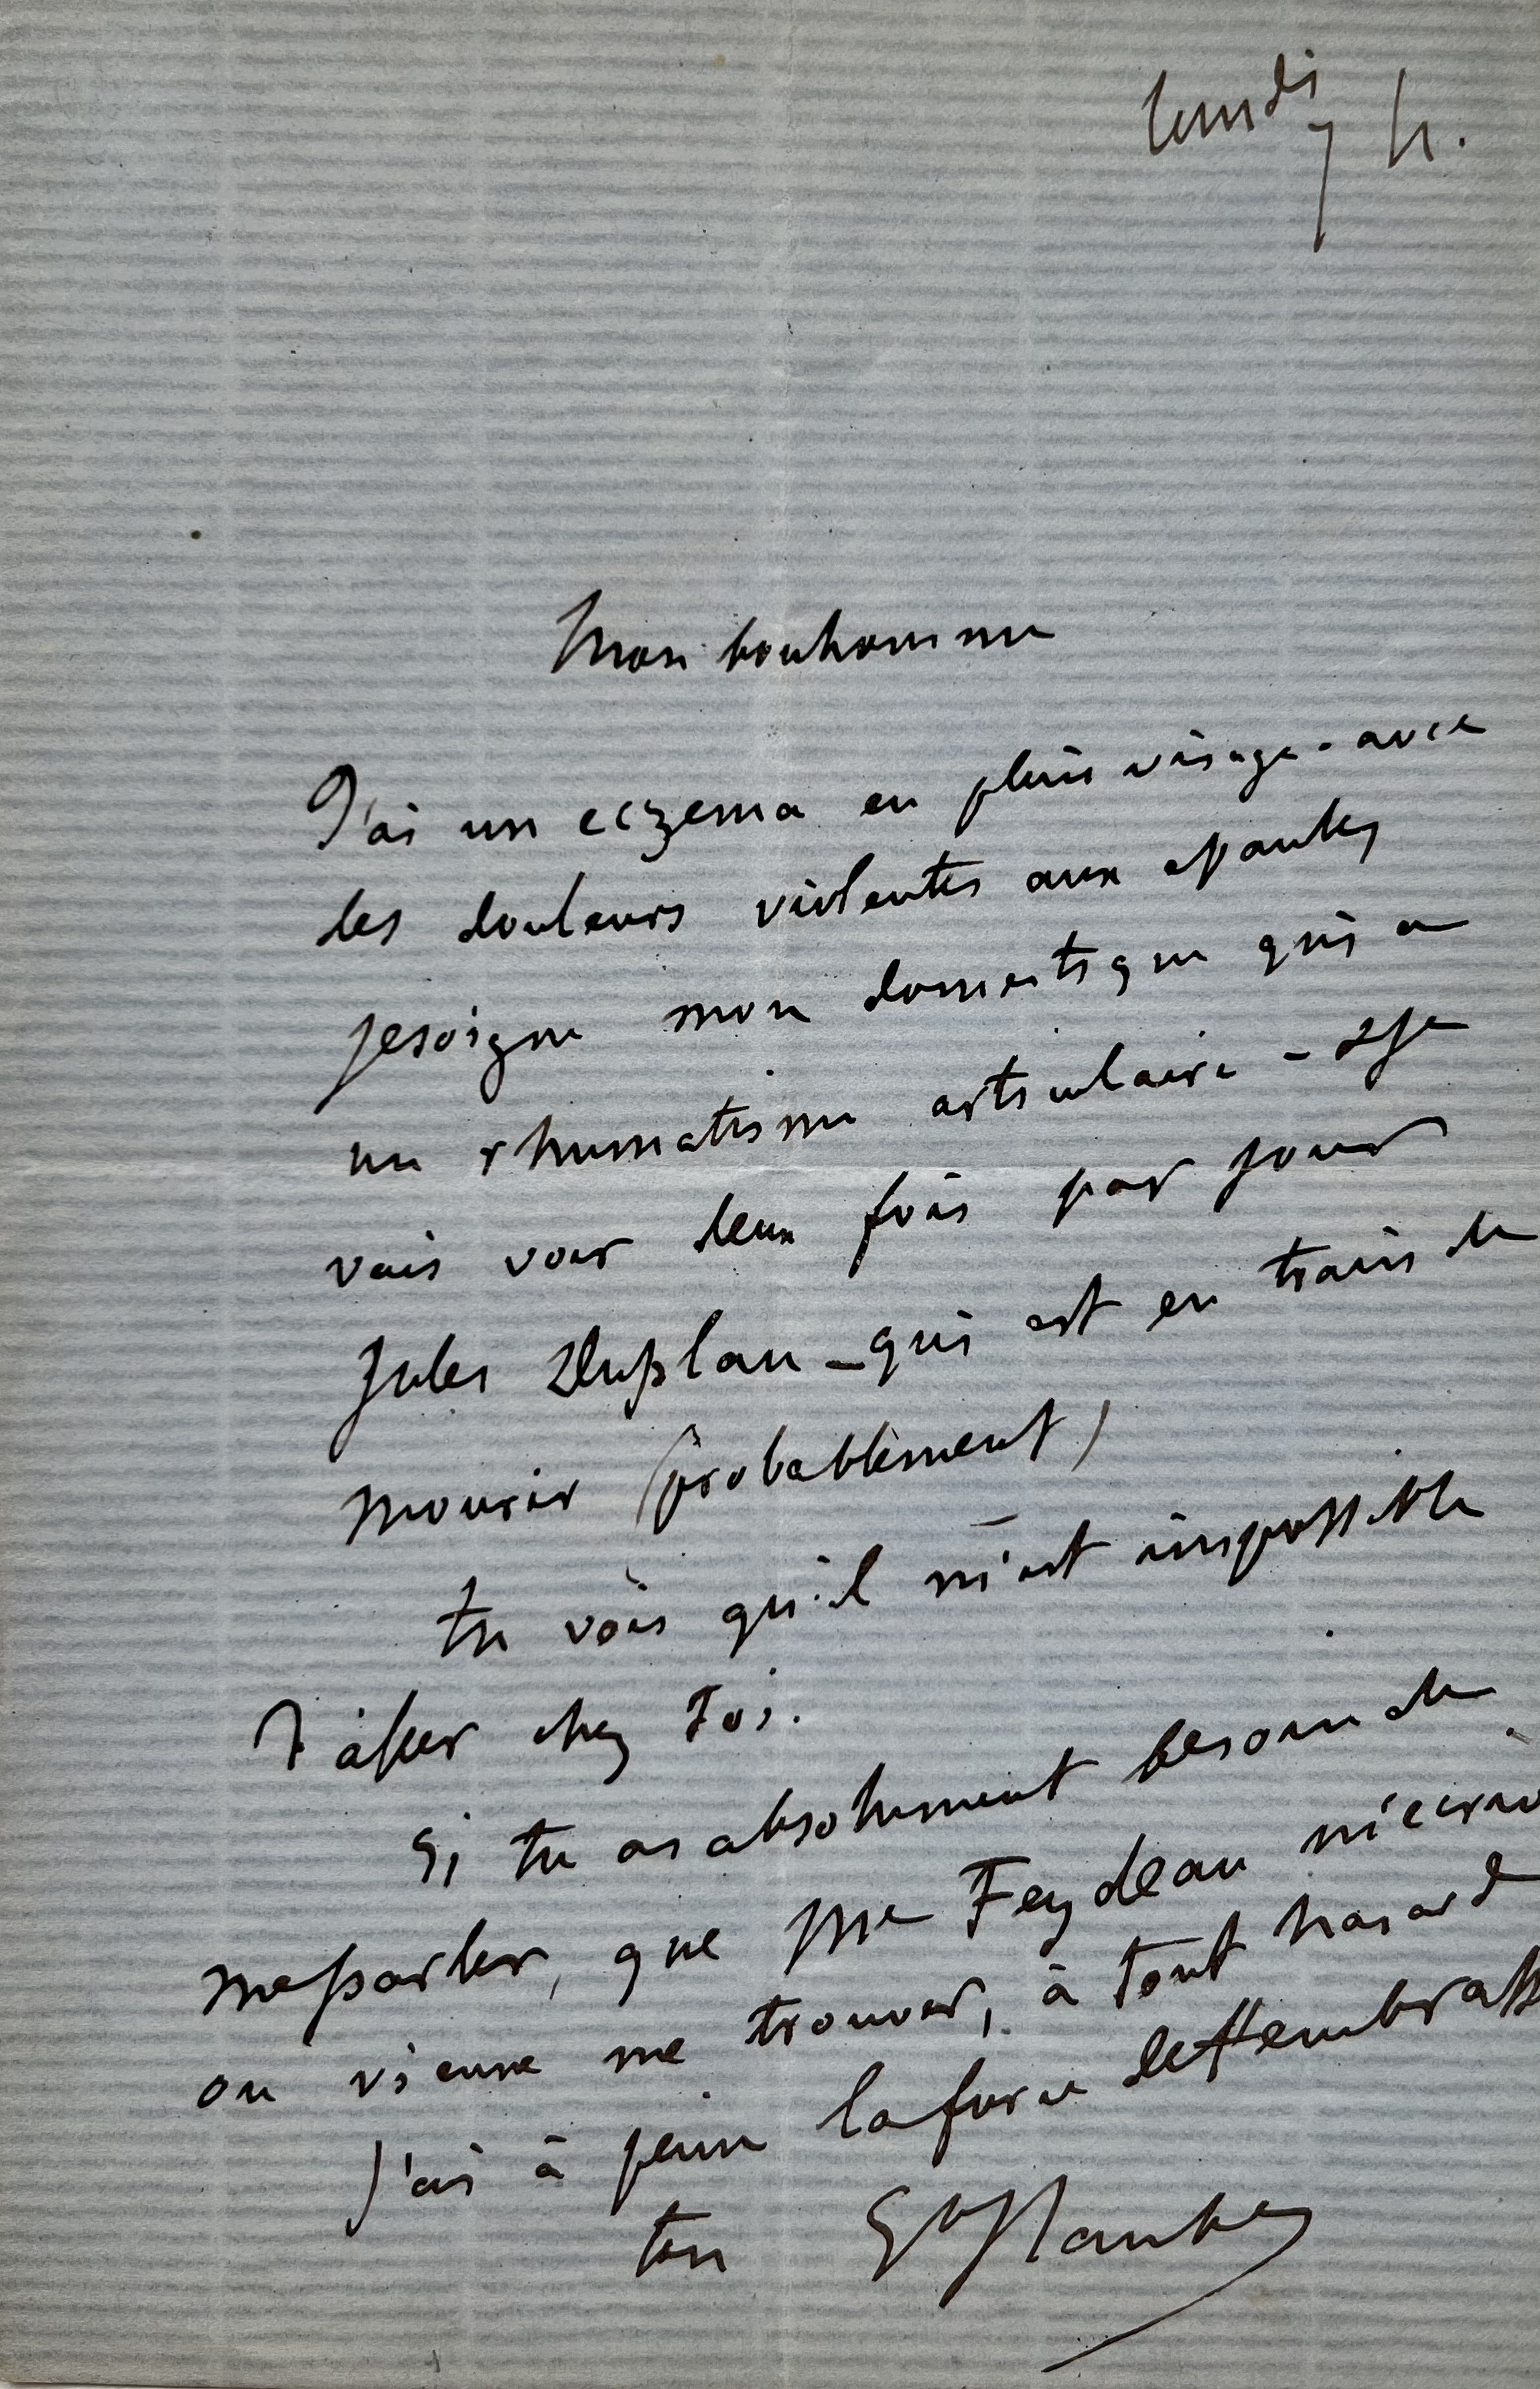 lundi 7 h.
Mon bonhomme
J'ai un eczema en plein visage - avec
des douleurs violentes aux epaules
je soigne mon domestique qui a
un rhumatisme articulaire - & je
vais voir deux fois par jour
Jules Duplan - qui est en train de
mourir (probablement)
tu vois qu'il m'est impossible
d'aller chez toi.
Si tu as absolument besoin de
me parler, que Me Feydeau m'ecrive
ou vienne me trouver, à tout hasard
J'ai à peine la force de t'embrasser
ton Gve Flaubert